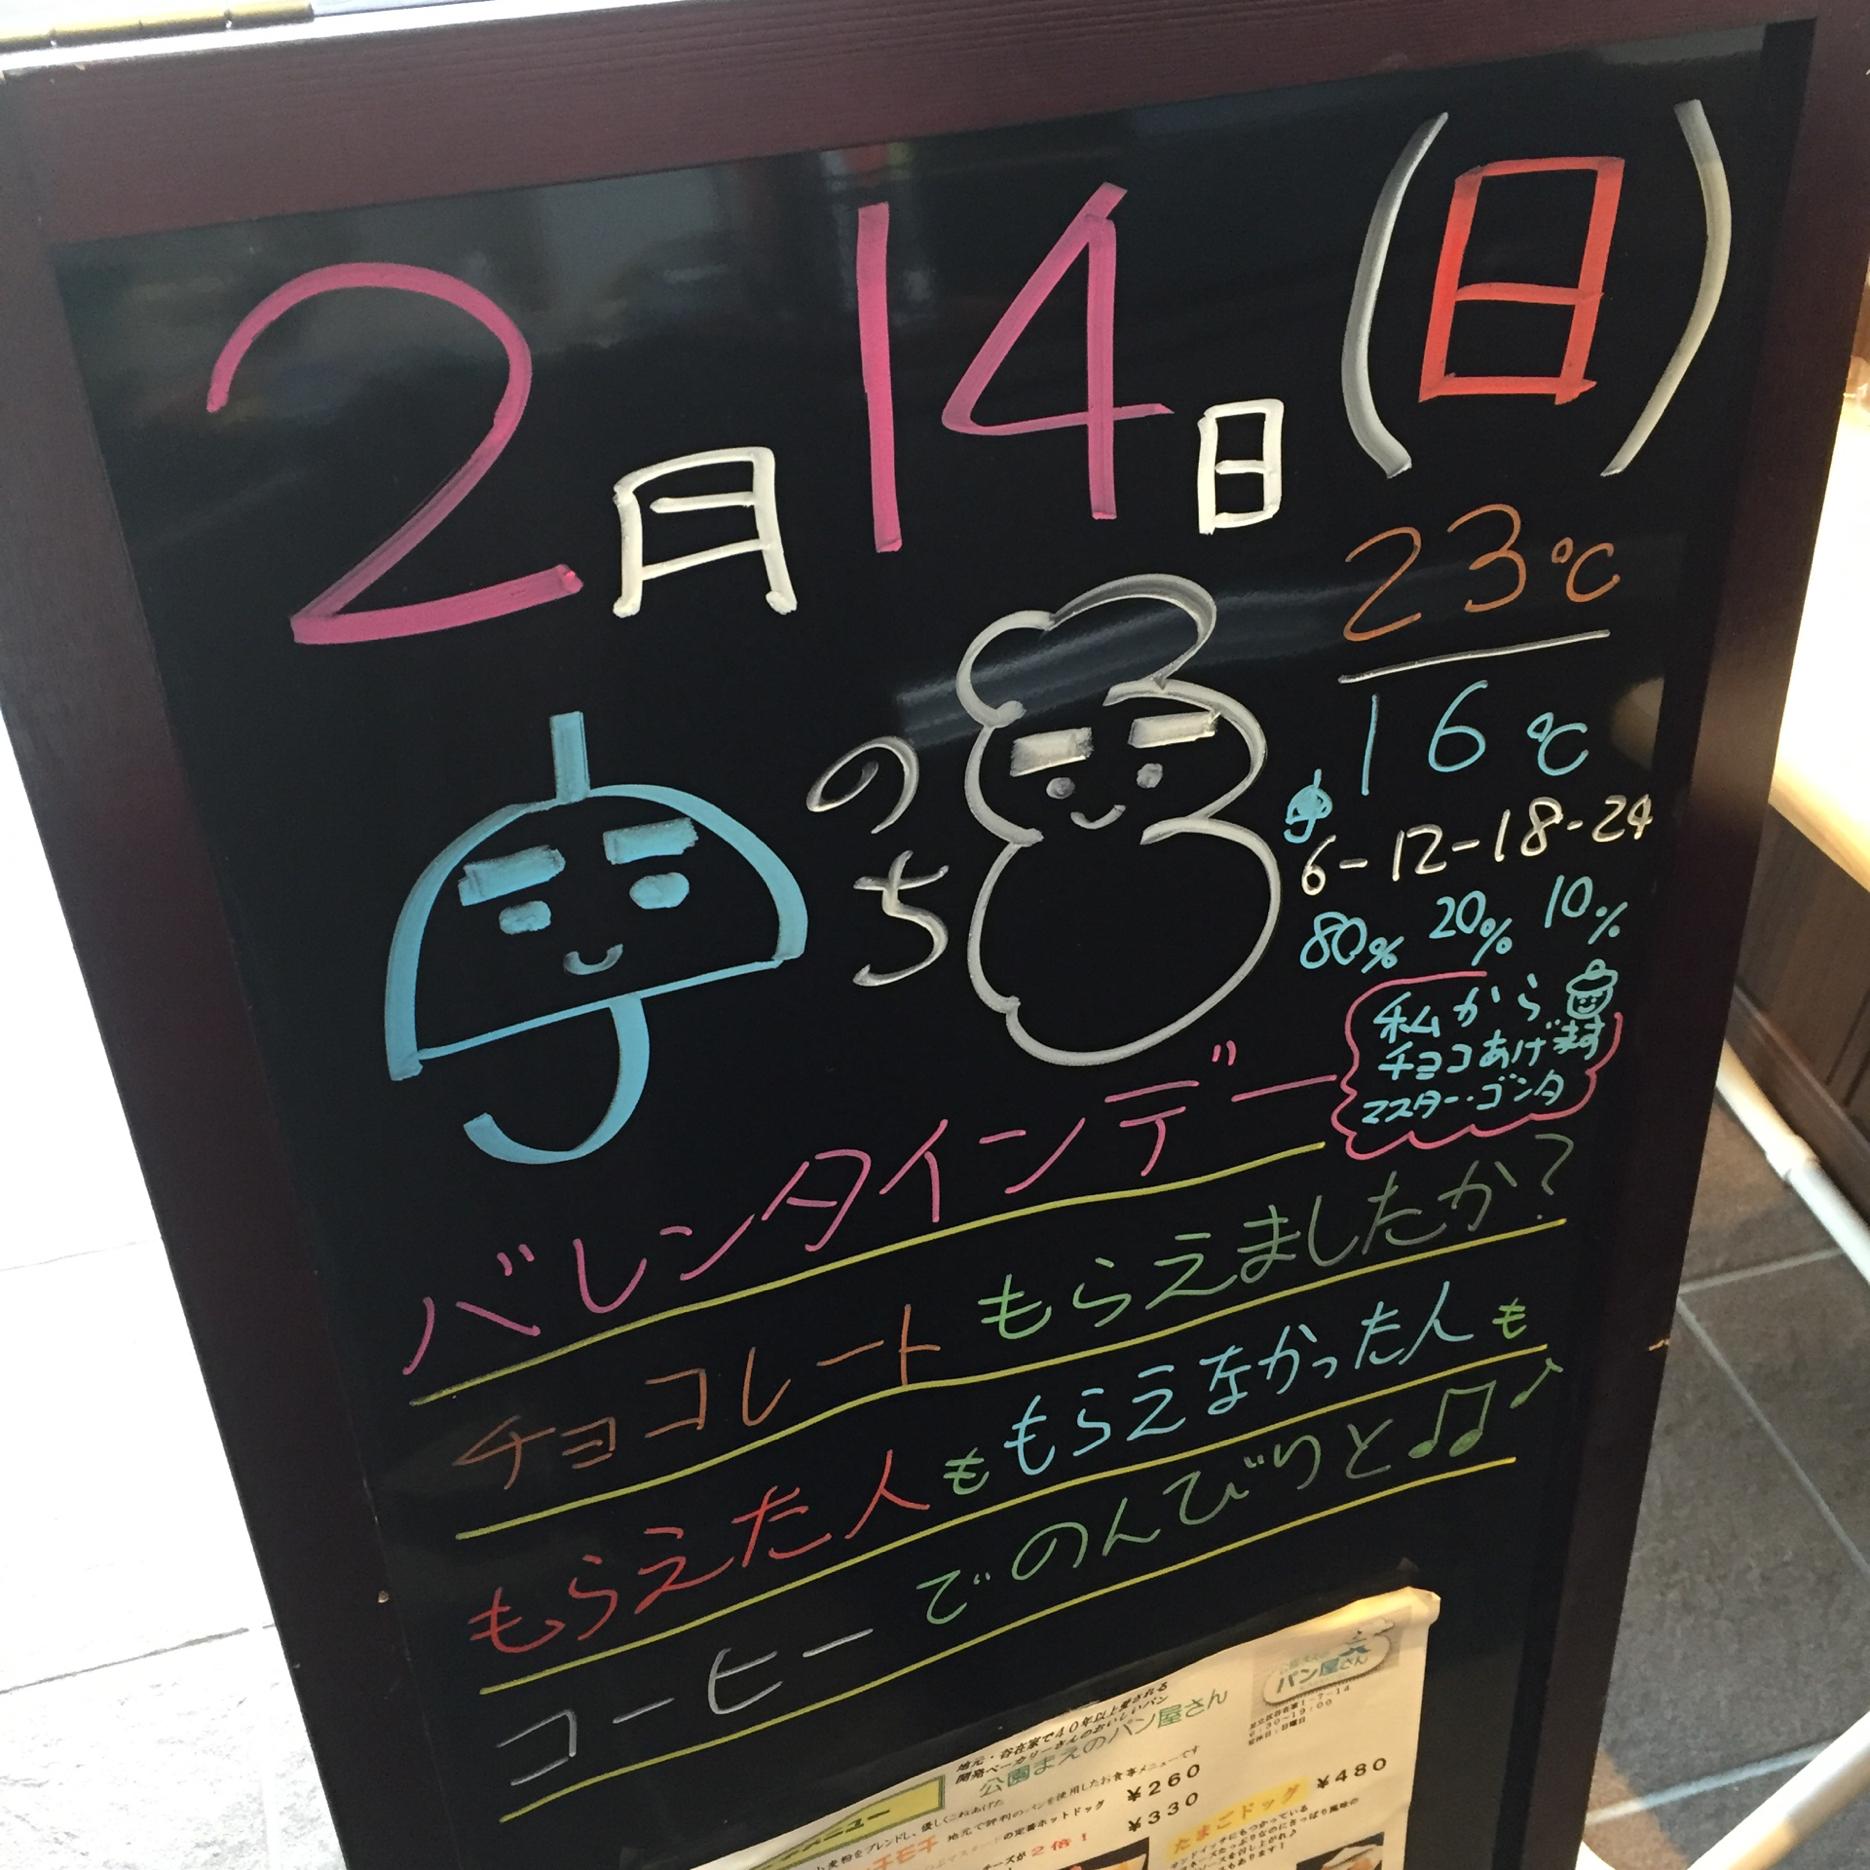 2月14日(日)
23℃
16℃
のち
6-12-18-24
80% 20% 10%
私から
チョコあげます
マスター・ゴンタ
バレンタインデー
チョコレートもらえましたか?
もらえた人ももらえなかった人も
コーヒーでのんびりと♫♪
パン屋さん
6:30~19:00
定休日:日曜日
地元・谷在家で40年以上愛される
開発ベーカリーさんのおいしいパン
公園まえのパン屋さん
地元で評判のパンを使用したお食事メニューです
の定番ホットドッグ ¥260
¥330
チーズが2倍!
たまごドッグ ¥480